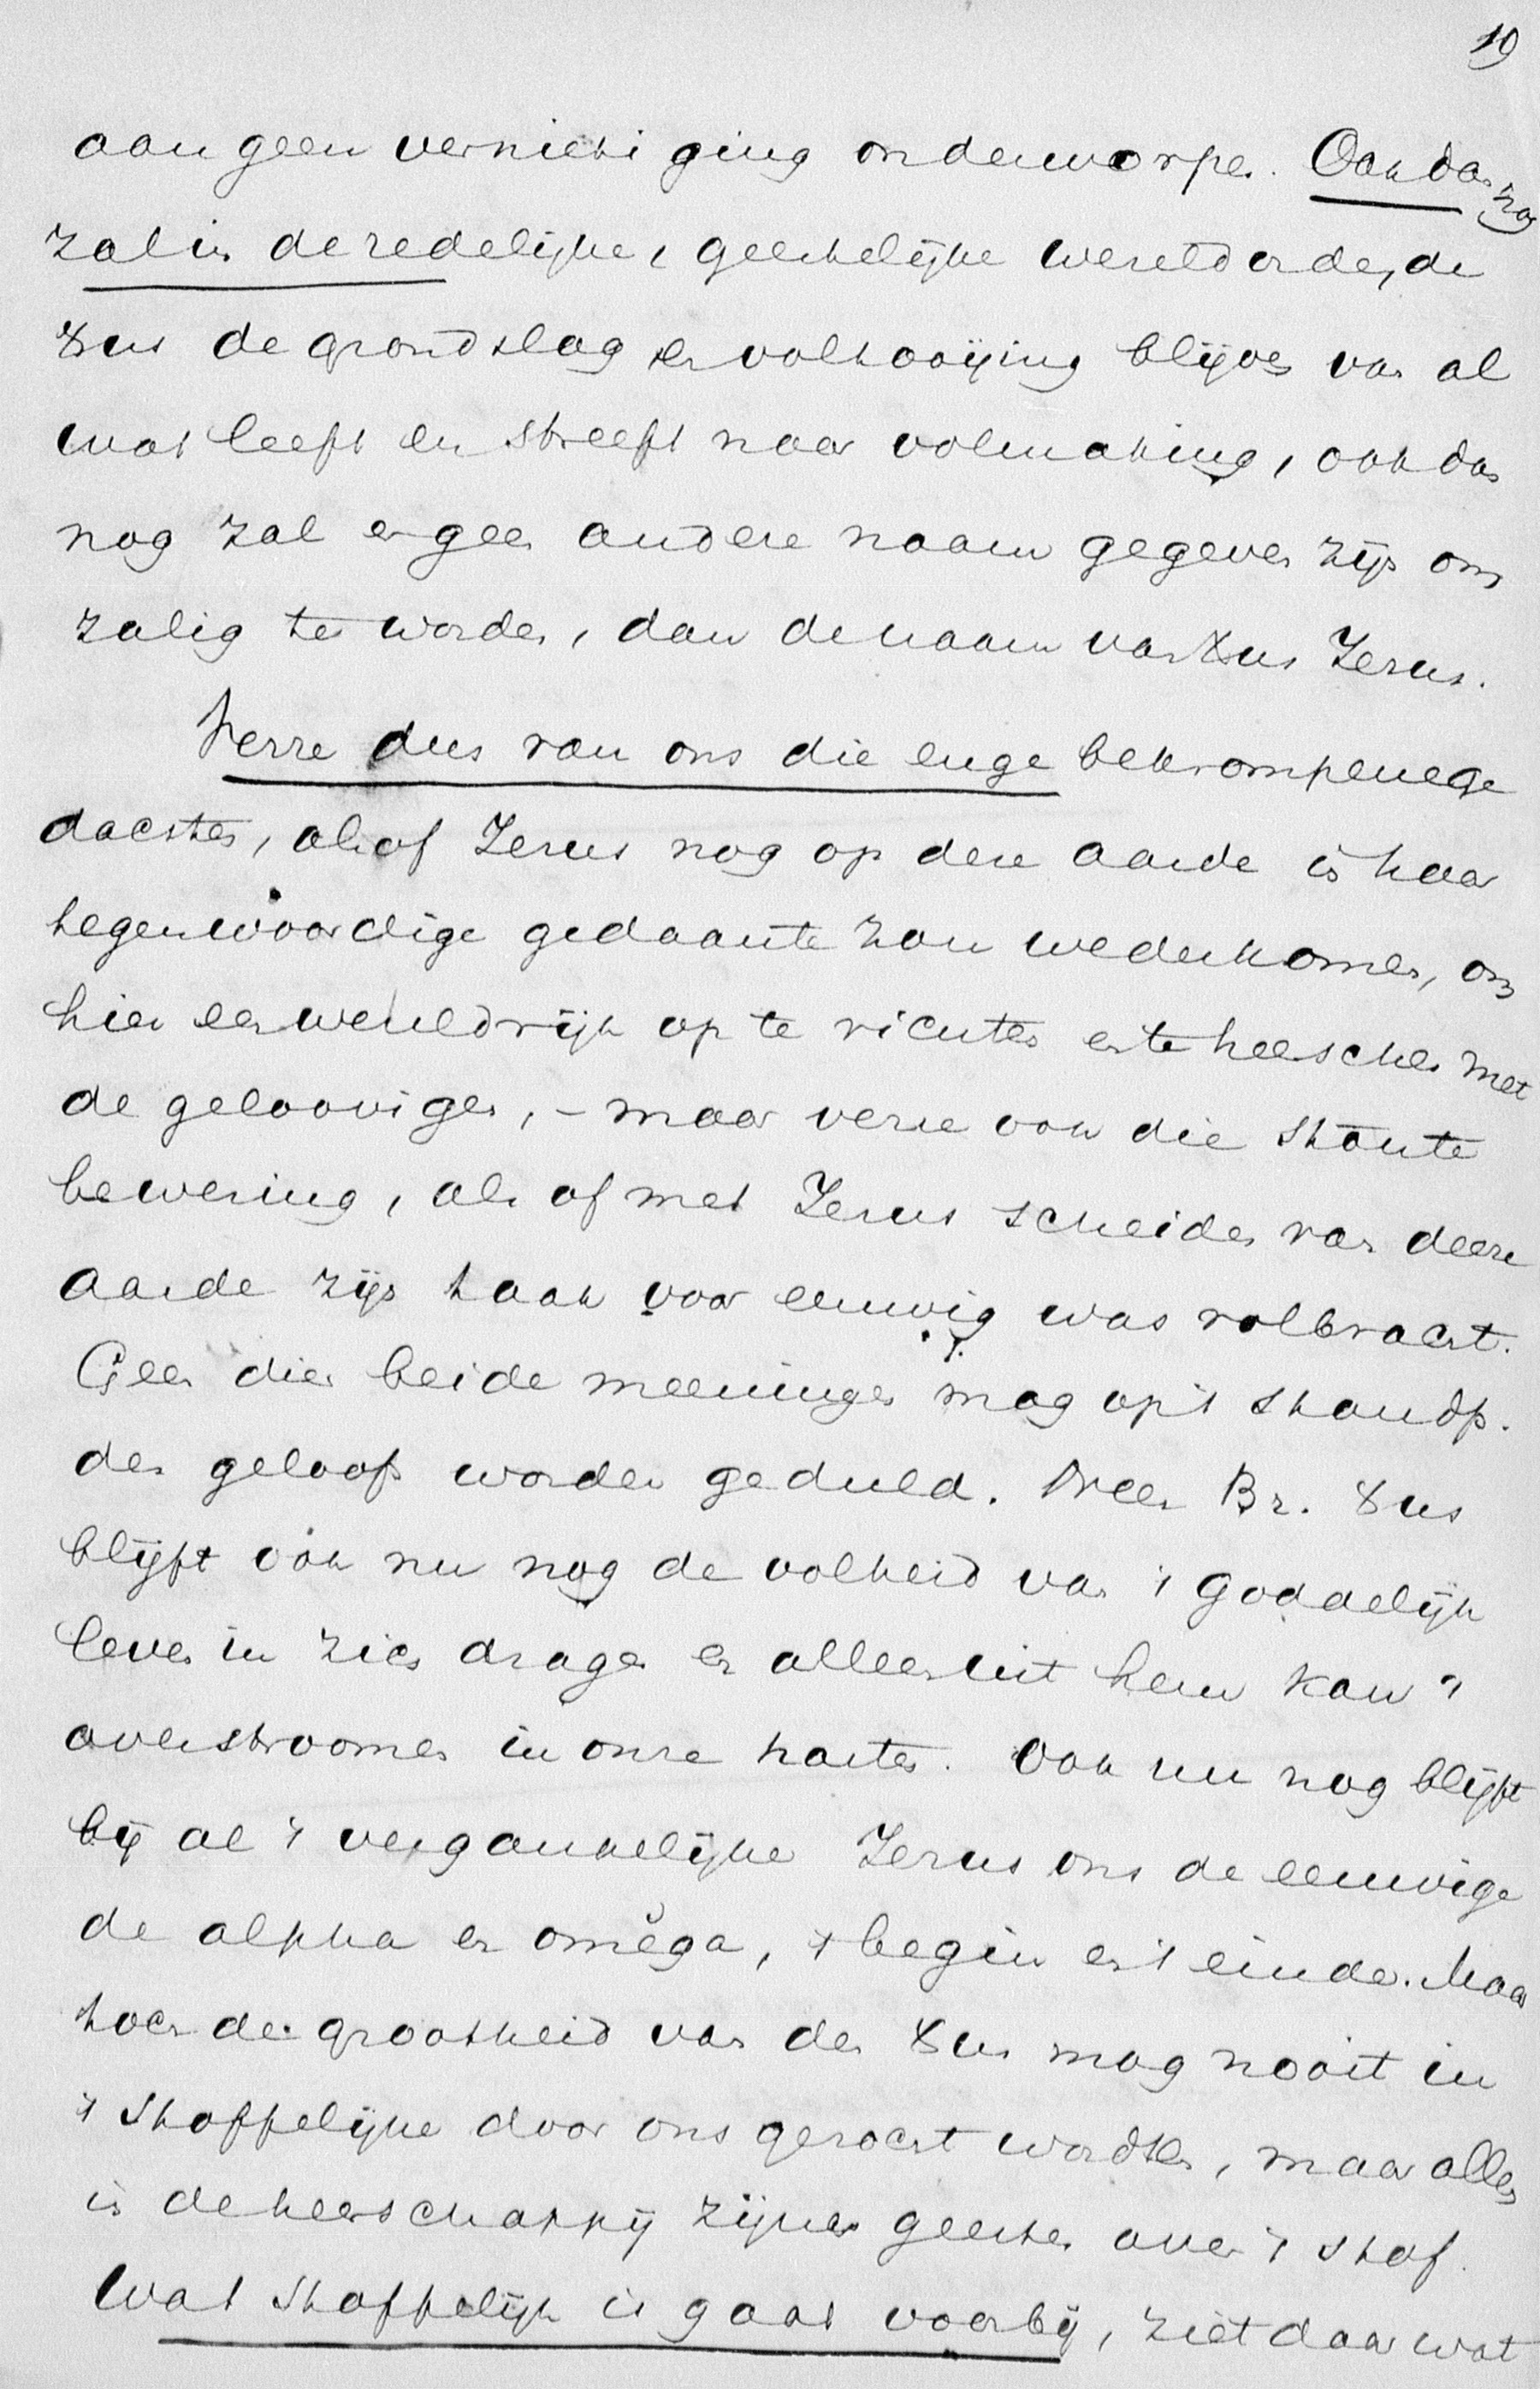 19
aan geen vernietiging onderworpen. Ook dan nog
zal in de redelijke, geestelijke wereldorde, de
Xus de grondslag en voltooijing blijven van al
wat leeft en streeft naar volmaking, ook dan
nog zal er geen andere naam gegeven zijn om
zalig te worden, dan de naam van Xus Jezus.
Verre dus van ons die enge bekrompene ge
dachten, alsof Jezus nog op deze aarde in haar
tegenwoordige gedaante zou wederkomen, om
hier een wereldrijk op te richten en te heerschen met
de geloovigen, – maar verre ook die stoute
bewering, als of met Jezus scheiden van deze
aarde zijn taak voor eeuwig was volbracht.
Geen dier beide meeningen mag op 't standp.
des geloofs worden geduld. Neen Br. Xus
blijft ook nu nog de volheid van 't goddelijk
leven in zich dragen en alleen uit hem kan 't
overstroomen in onze harten. Ook nu nog blijft
bij al 't vergankelijke Jezus ons de eeuwige
de alpha en omega, 't begin en 't einde. Maar
toch de grootheid van den Xus mag nooit in
't stoffelijke door ons gezocht worden, maar alles
in de heerschappij zijnes geestes over 't stof.
Wat stoffelijk is gaat voorbij, ziet daar wat